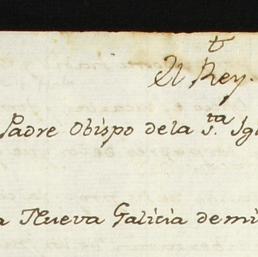 t
El Rey.
Padre Obispo dela S.ta Igl
a Nueva Galicia demi